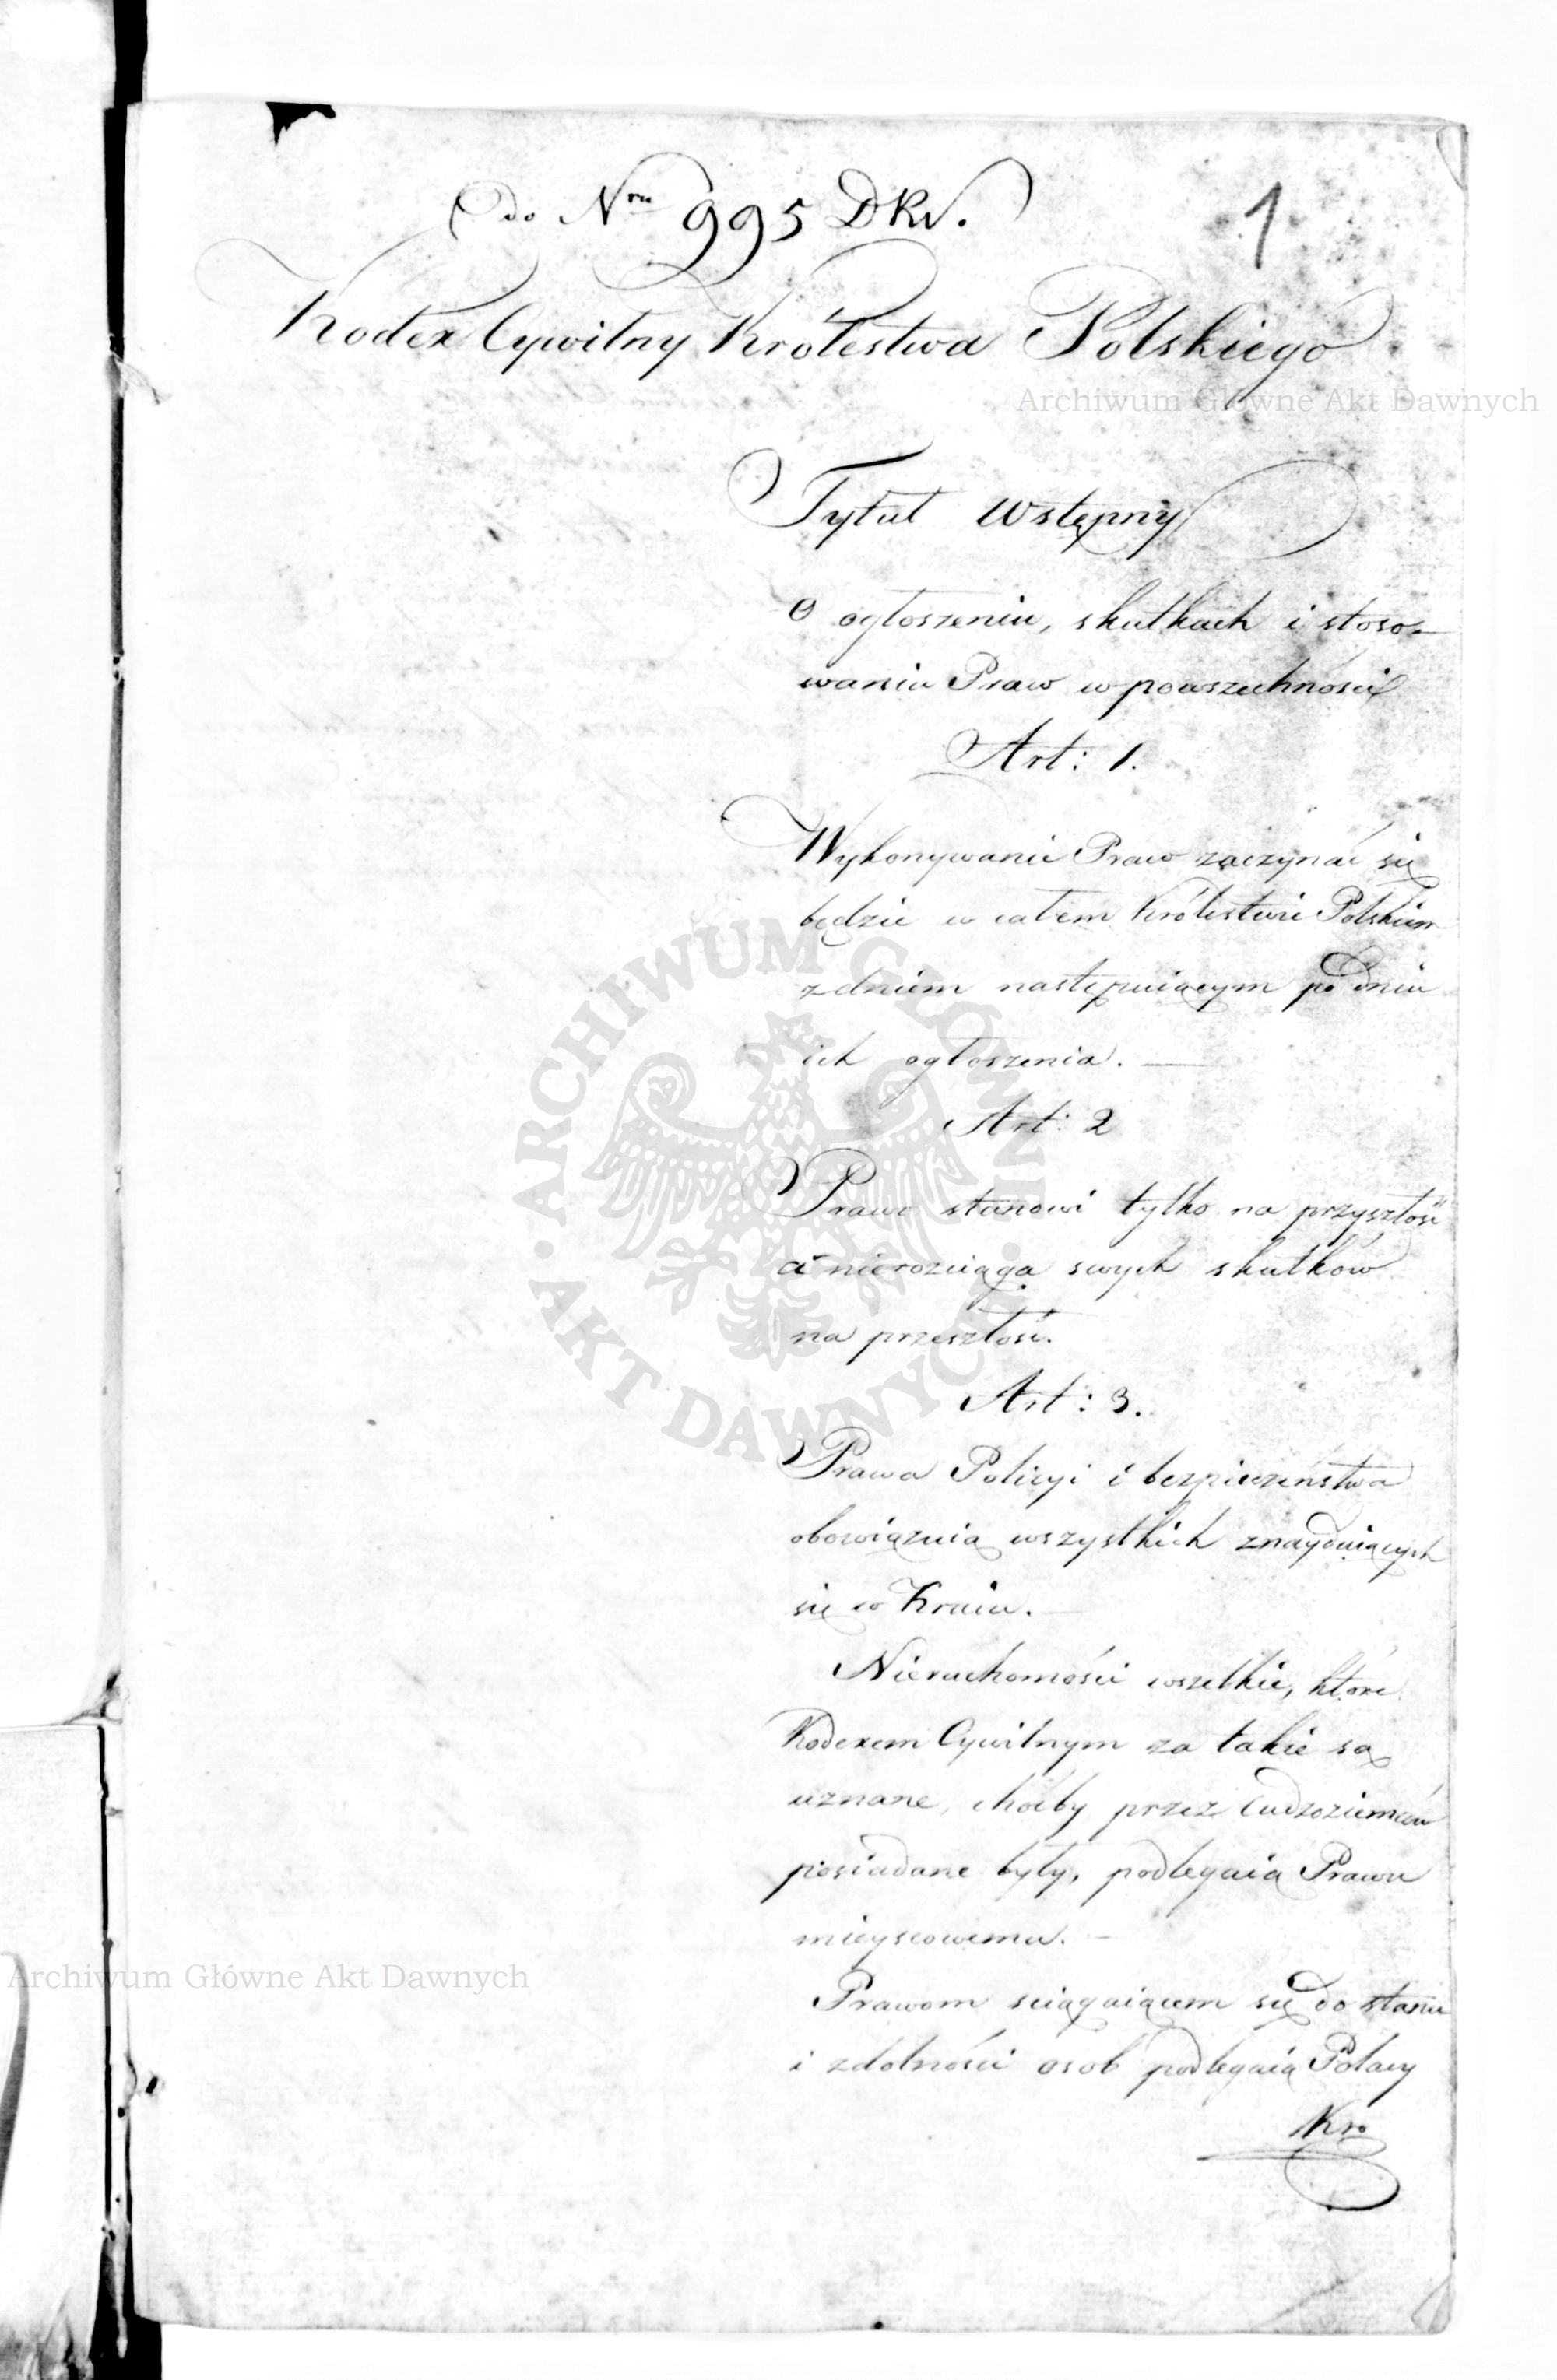 do Nru 995 DKr.
1
Kodex Cywilny Królestwa Polskiego
Archiwum Główne Akt Dawnych
Tytuł Wstępny
O ogłoszeniu, skutkach i stoso-
waniu Praw w powszechności
Art: 1.
Wykonywanie Praw zaczynać się
będzie w całem Królestwie Polskiem
z dniem następuiącym po dniu
ich ogłoszenia. —
Art: 2
Prawo stanowi tylko na przyszłość
a nierozciąga swych skutków
na przeszłość.
Art: 3.
Prawa Policyi i bezpieczeństwa
obowiązuią wszystkich znayduiących
się w Kraiu. —
Nieruchomości wszelkie, które
Kodexem Cywilnym za takie są
uznane, choćby przez Cudzoziemców
posiadane były, podlegaią Prawu
mieyscowemu. —
Archiwum Główne Akt Dawnych
Prawom sciągaiącem się do stanu
i zdolności osob podlegaią Polacy
Kro
ARCHIWUM GŁÓWNE
AKT DAWNYCH